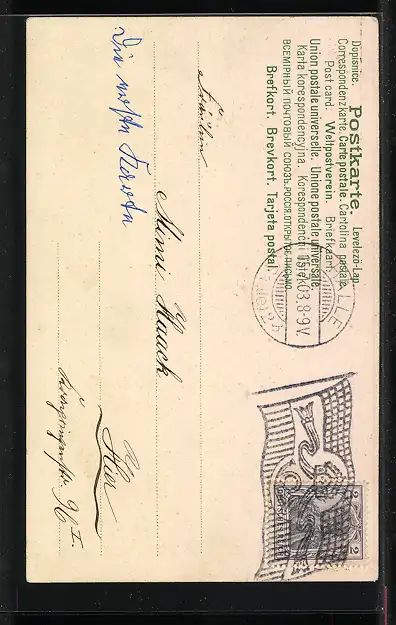 Dopisnice. Postkarte. Levelező-Lap
Correspondenzkarte. Carte postale. Cartolina postale
Post card. Weltpostverein. Briefkaart
Union postale universelle. Unione postale universale.
Karta korespondencyjna. Korespondenční lístek
ВСЕМІРНЫЙ ПОЧТОВЫЙ СОЮЗЪ. РОССІЯ. ОТКРЫТОЕ ПИСЬМО
Brefkort. Brevkort. Tarjeta postal.
ALLE
03.8-9V.
2 2
Fräulein
Mimi Haack
Hier
Kronprinzenstr. 96 I.
Die rosten